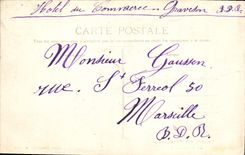 Hotel du Commerce - Graveson B.D.R.
CARTE POSTALE
Monsieur Gausson
rue. St Ferreol 50
Marseille
B.D.R.